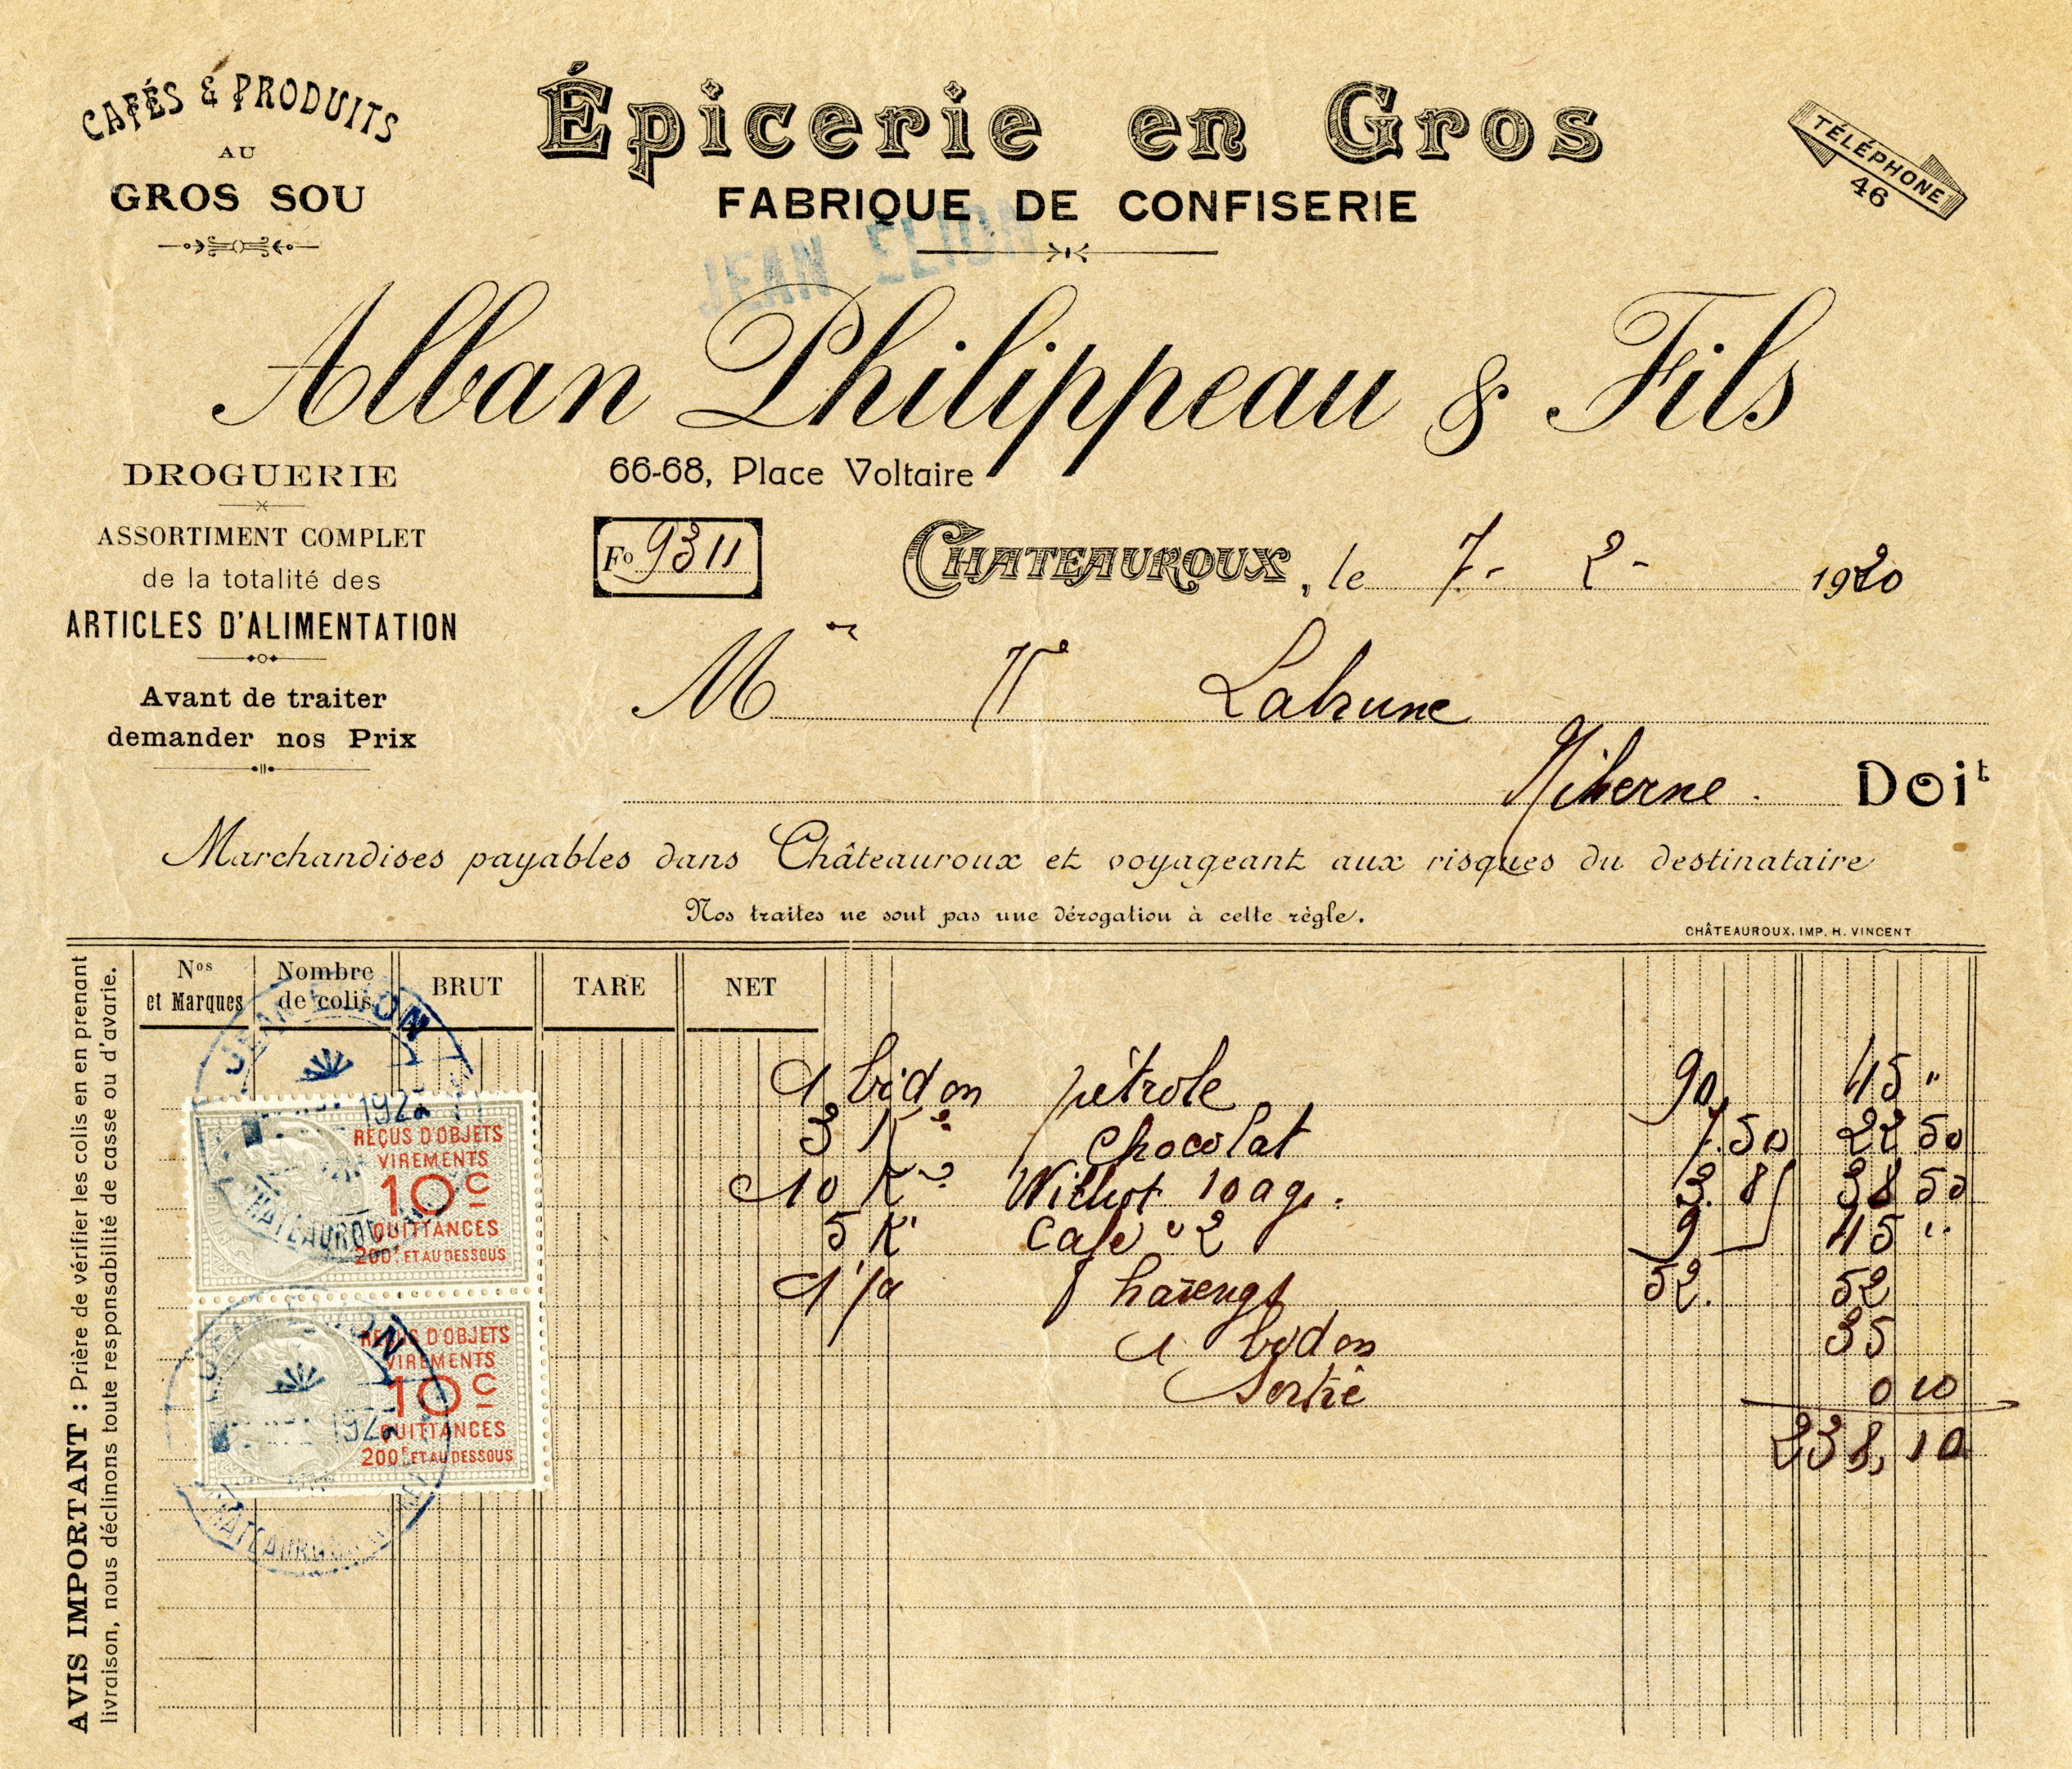 CAFÉS & PRODUITS
AU
GROS SOU
Épicerie en Gros
FABRIQUE DE CONFISERIE
TÉLÉPHONE
46
JEAN
Alban Philippeau & Fils
66-68, Place Voltaire
DROGUERIE
ASSORTIMENT COMPLET
de la totalité des
ARTICLES D'ALIMENTATION
Avant de traiter
demander nos Prix
Fº 9311
CHATEAUROUX, le 7- 2- 1920
M Vᵉ Labrune
Niherne. Doiᵗ
Marchandises payables dans Châteauroux et voyageant aux risques du destinataire
Nos traites ne sont pas une dérogation à cette règle.
CHÂTEAUROUX, IMP. H. VINCENT
AVIS IMPORTANT : Prière de vérifier les colis en en prenant
livraison, nous déclinons toute responsabilité de casse ou d'avarie.
Nᵒˢ et Marques
Nombre de colis
BRUT
TARE
NET
1 bidon pétrole 90 45 "
3 K chocolat 7.50 22 50
10 K 10 3.85 38 50
5 K café 2 9 45 "
1 harengs 52. 52
1 bidon 35
Sortie 0 10
238,10
REÇUS D'OBJETS
VIREMENTS
10ᶜ
QUITTANCES
200ᶠ ET AU DESSOUS
REÇUS D'OBJETS
VIREMENTS
10ᶜ
QUITTANCES
200ᶠ ET AU DESSOUS
CHATEAUROUX